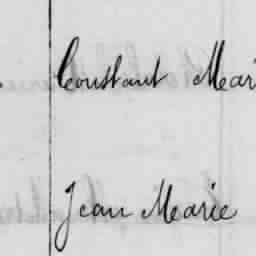 Constant Mari
Jean Marie